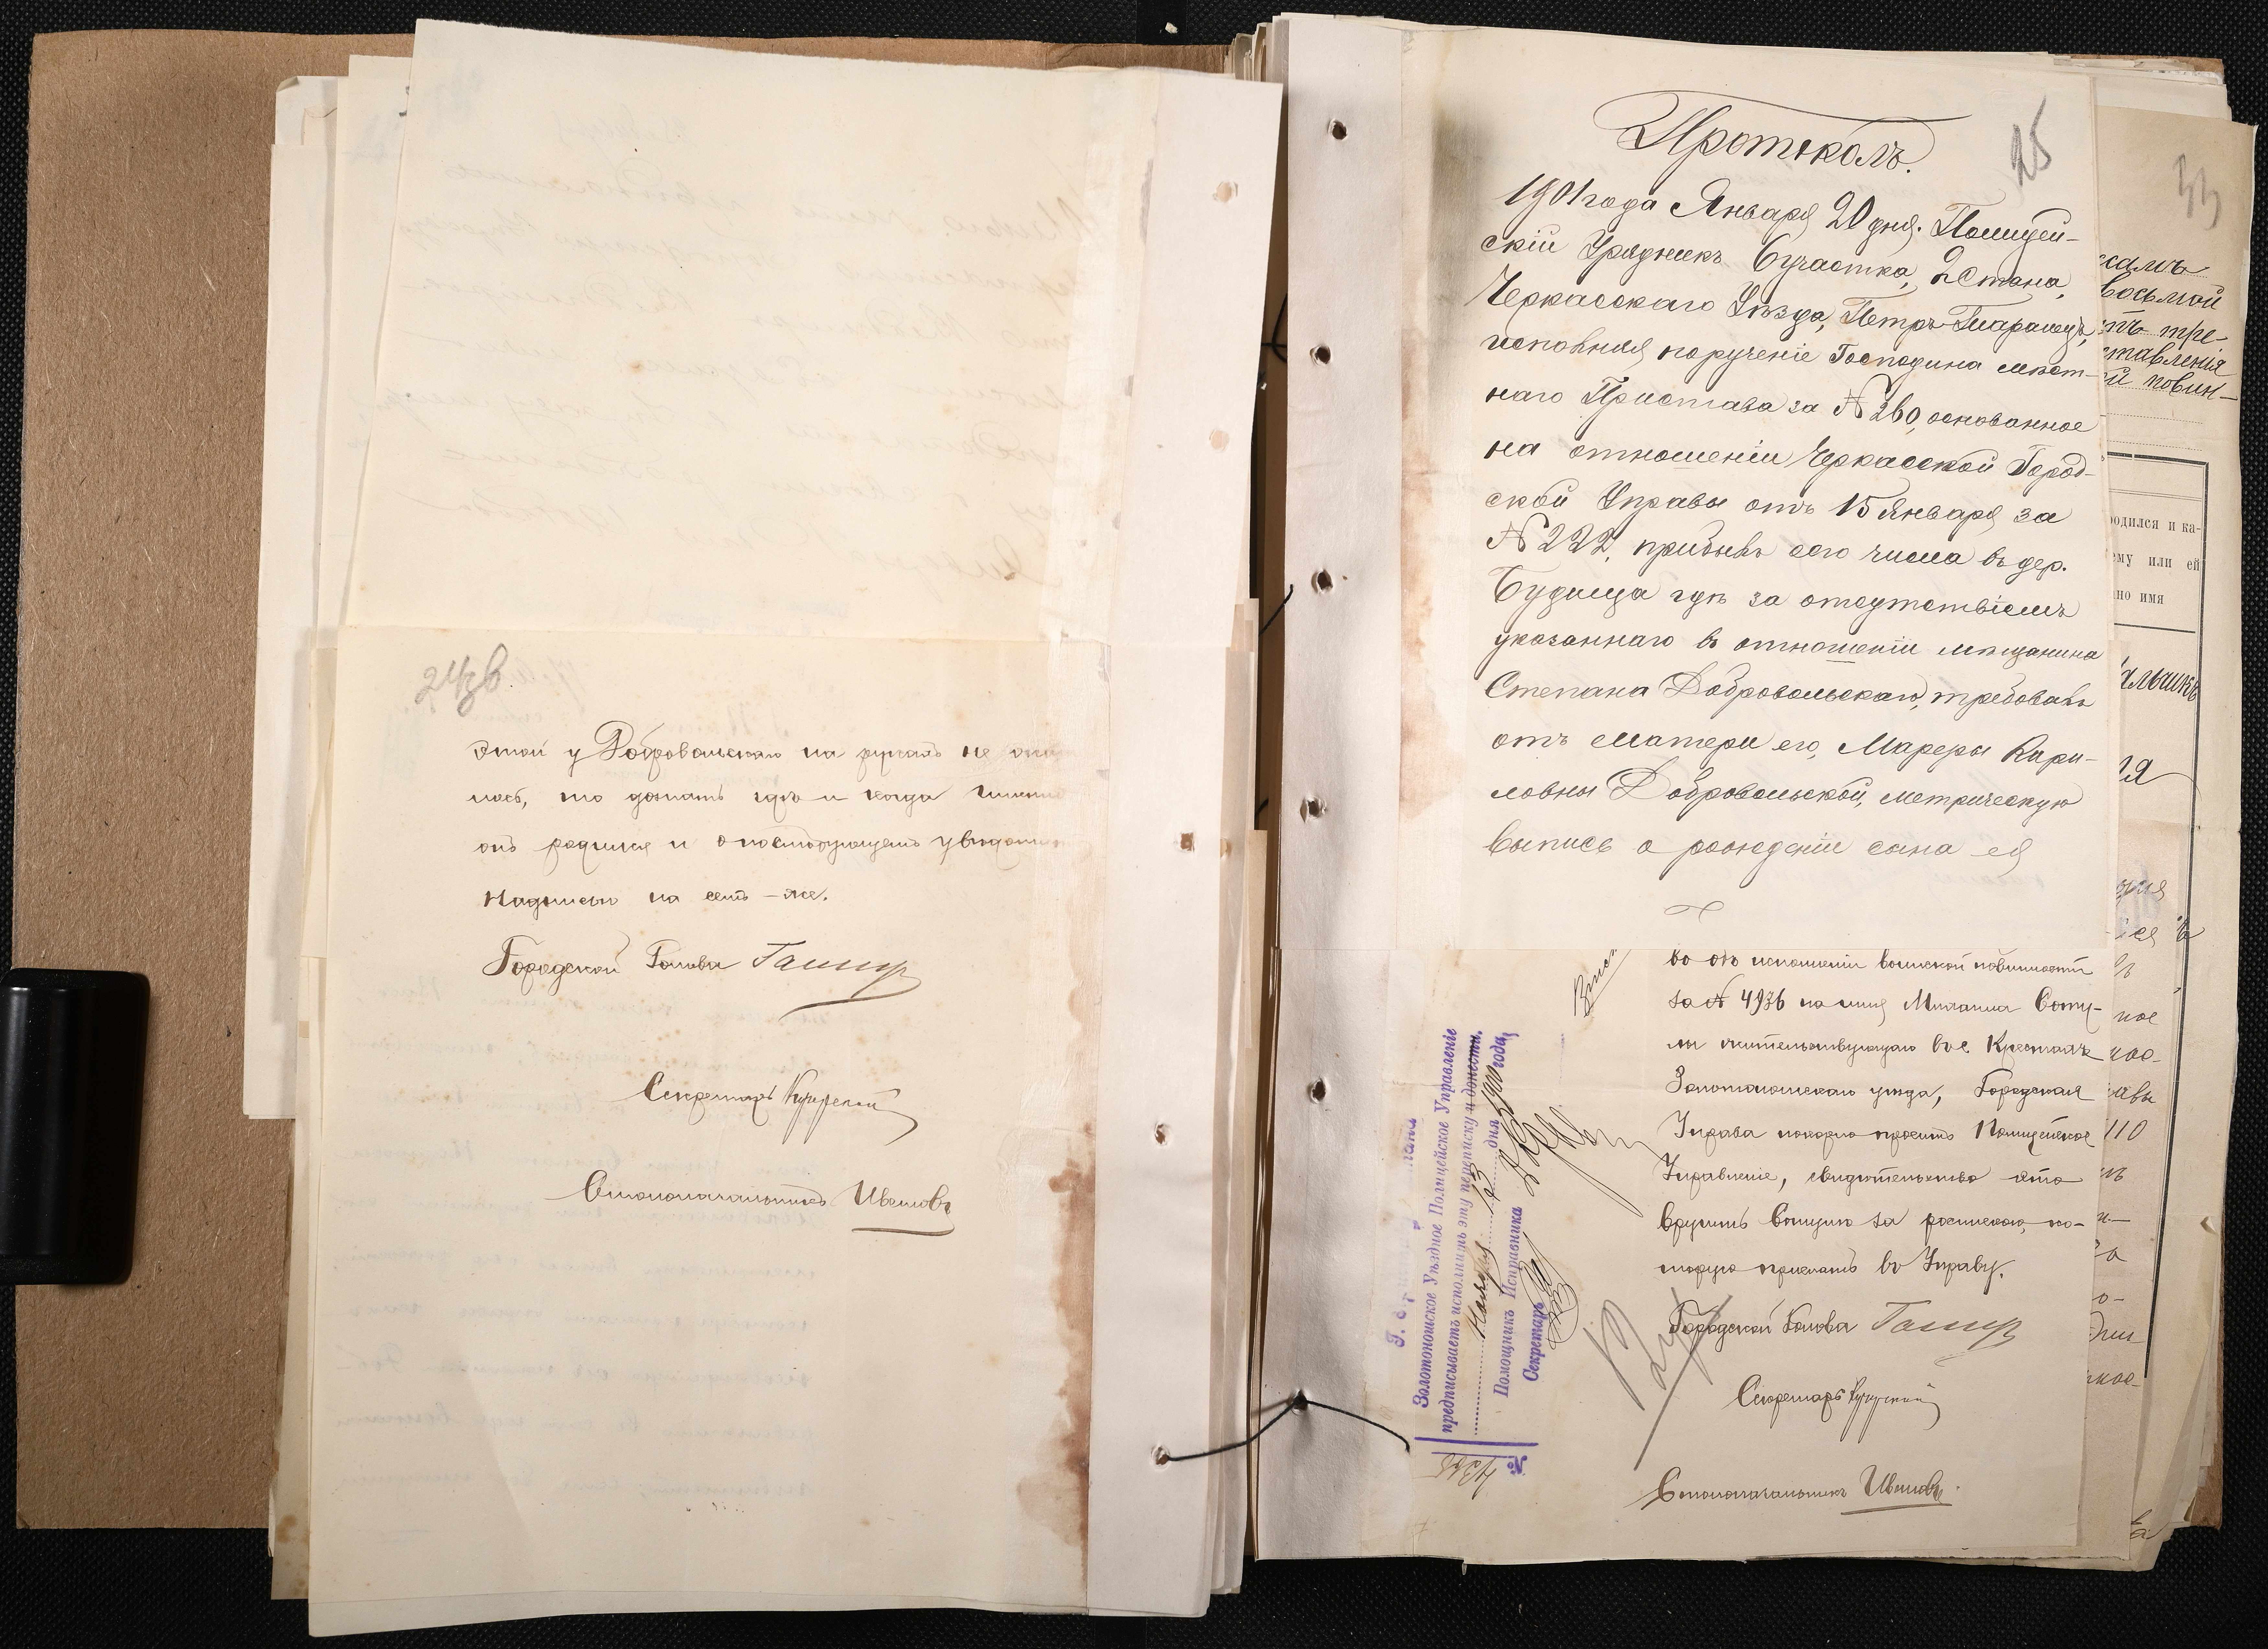 24зв.
этой у Добровольскаго на рукахъ не ока
лось, то дознать гдѣ и когда именно
онъ родился и о послѣдующемъ увѣдоми
надписью на семъ-же.
Городской Голова
Секретарь
Столоначальникъ Ивановъ
25
Протоколъ.
1901 года Января 20 дня. Полицей-
скій Урядникъ 6 участка, 2 Стана,
Черкасскаго Уѣзда, Петръ Таранецъ,
исполняя порученіе Господина мѣст-
наго Пристава за № 260, основанное
на отношеніи Черкасской Город-
ской Управы отъ 15 Января за
№ 222, прибывъ сего числа въ дер.
Будища гдѣ за отсутствіемъ
указаннаго въ отношеніи мѣщанина
Степана Добровольскаго, требовавъ
отъ матери его, Марѳры Кири-
ловны Добровольской, метрическую
выпись о рожденіи сына ея
во объ исполненіи воинской повинности
за № 4936 на имя Михаила
жительствующаго въ с.
Золотоношскаго уѣзда, Городская
Управа покорно проситъ Полицейское
Управленіе, свидѣтельство это
вручить за роспискою, ко-
торую прислать въ Управу.
Городской Голова
Секретарь
Столоначальникъ Ивановъ
Золотоношское Уѣздное Полицейское Управленіе
предписываетъ исполнить эту переписку и донести.
Ноября 23 дня 1900 года
Помощникъ Исправника
Секретарь
№
33
восьмой
тре-
ставленія
повин-
родился и ка-
ему или ей
ано имя